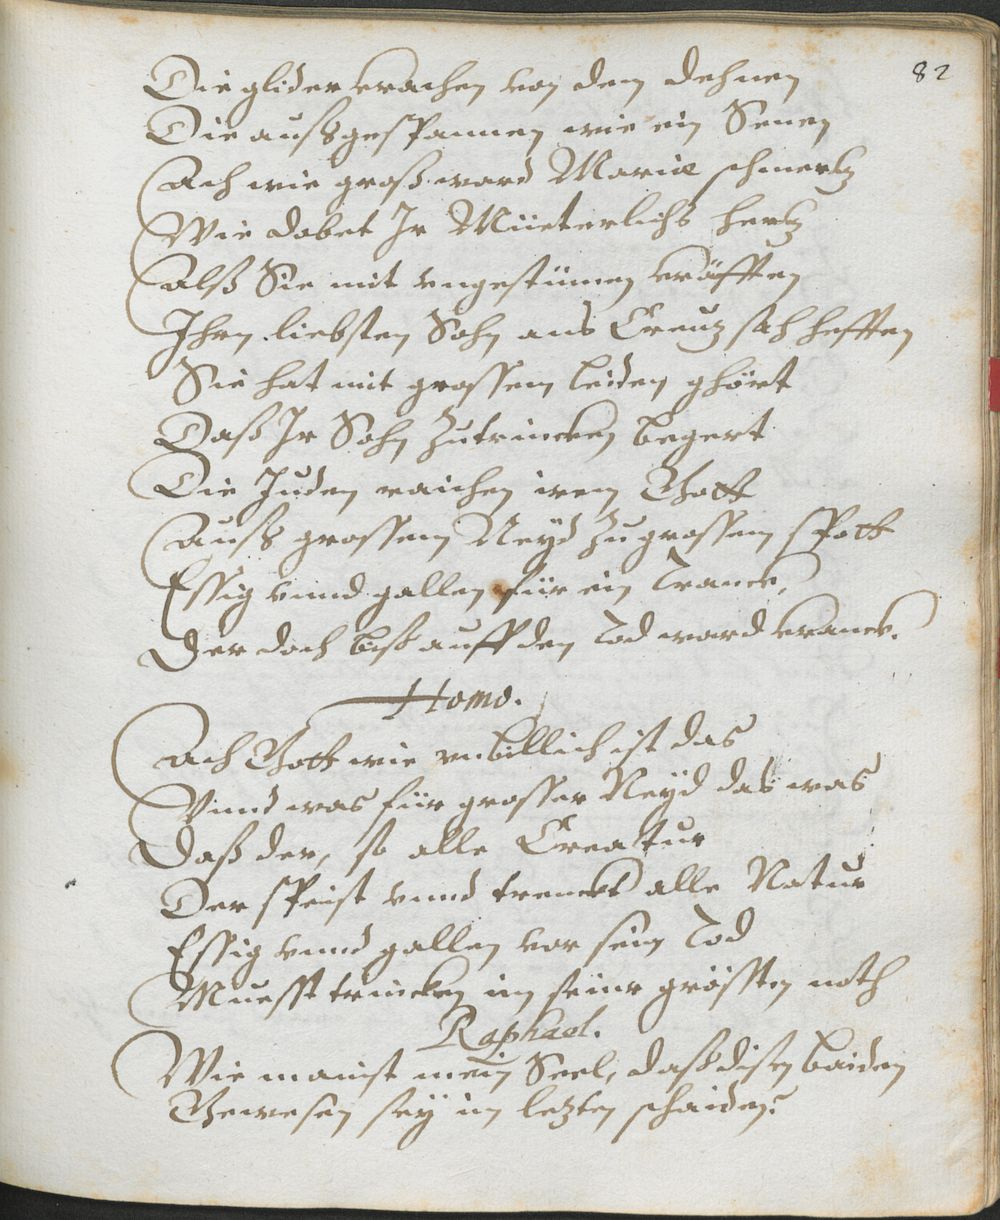 82
Die glider krachen von dem dehnen
Die außgespannen wie ein Senen
Ach wie groß ward Mariæ schmertz
Wie dobet Jr Müeterlichs hertz
Alß Sie mit vngestümen kräfften
Jhrn liebsten Sohn ans Creutz sah hefften
Sie hat mit grossem leiden ghört
Daß Jr Sohn zutrincken begert
Die Juden raichen irem Gott
Auß grossem Neyd zu grossem spott
Essig vnnd gallen für ein Tranck,
Der doch biß auff den Tod ward kranck.
Homo.
Ach Gott wie vnbillich ist das
Vnnd was für grosser Neyd das was
Daß der, so alle Creatur
Der speist vnnd trenckt alle Natur
Essig vnnd gallen vor seim Tod
Muesst trincken im seinr grössten noth
Raphael.
Wie mainst mein Seel, daß disen baiden
Gewesen sey im letzten schaiden?